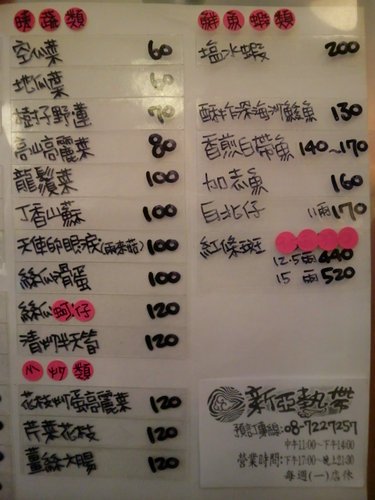 蔬菜類
空心菜 60
地瓜葉 60
樹子野蓮 70
高山高麗菜 80
龍鬚菜 100
丁香山蘇 100
天使的眼淚(雨來菇) 100
絲瓜滑蛋 100
絲瓜蚵仔 120
清炒半天筍 120
小炒類
花枝炒蛋高麗菜 120
芹菜花枝 120
薑絲大腸 120
鮮魚蝦類
塩水蝦 200
酥炸深海沙鯪魚 130
香煎白帶魚 140~170
加志魚 160
白北仔 11兩170
紅條班
12.5兩 440
15兩 520
新亞熱帶
預訂專線:08-7227257
中午11:00~下午14:00
營業時間:下午17:00~晚上21:30
每週(一)店休